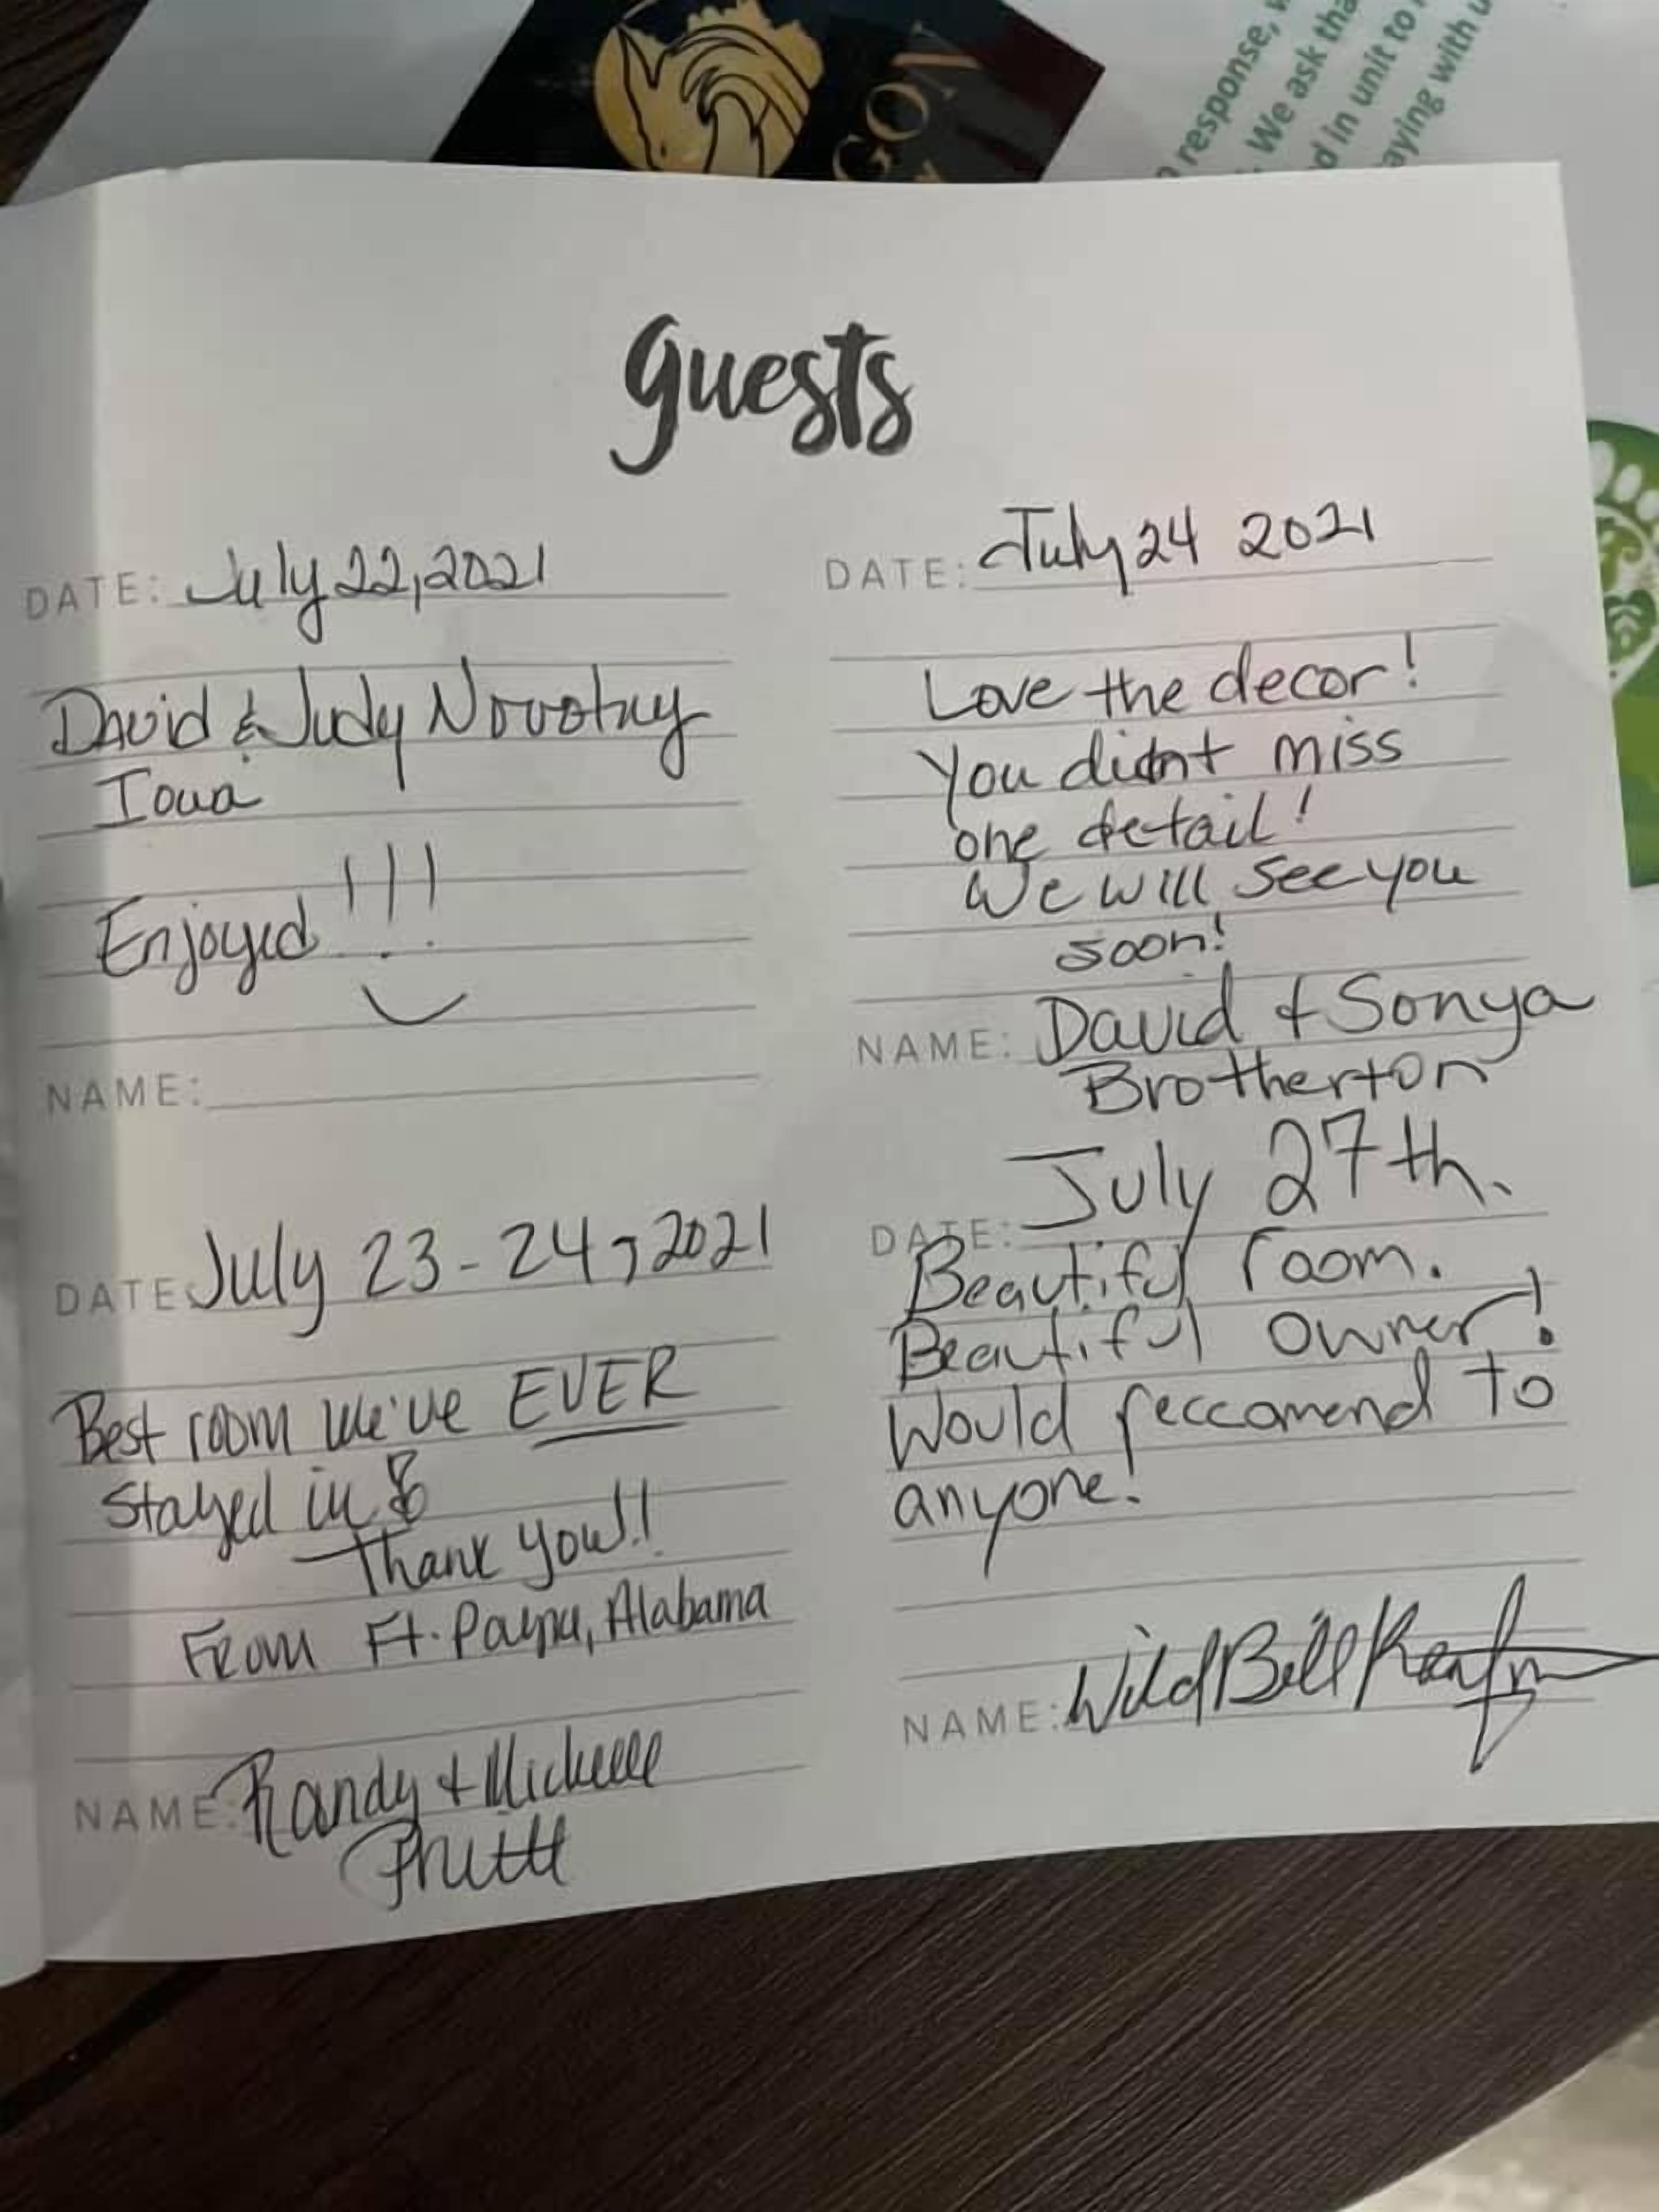 GON
response,
We ask tha
d in unit to
aying with u
guests
DATE: July 22, 2021
David & Judy Novotny
Iowa
Enjoyed !!!
NAME:
DATE: July 23-24, 2021
Best room we've EVER
stayed in!
Thank you!!
From Ft. Payne, Alabama
NAME: Randy + Michelle
Pruitt
DATE: July 24 2021
Love the decor!
You didnt miss
one detail!
We will see you
soon!
NAME: David + Sonya
Brotherton
DATE: July 27th.
Beautiful room.
Beautiful owner!
Would reccomend to
anyone!
NAME: Wild Bill